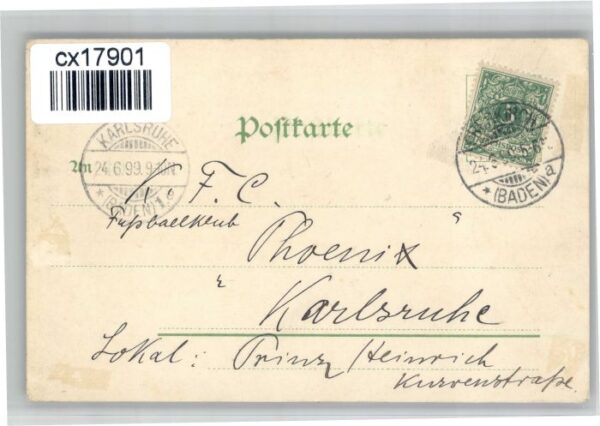 cx17901
Postkarte
KARLSRUHE
An 24.6.99.
(BADEN) 1
(BADEN) a
F. C.
Fussballklub
"Phoenix"
Karlsruhe
Lokal: Prinz Heinrich
Kurvenstraße.